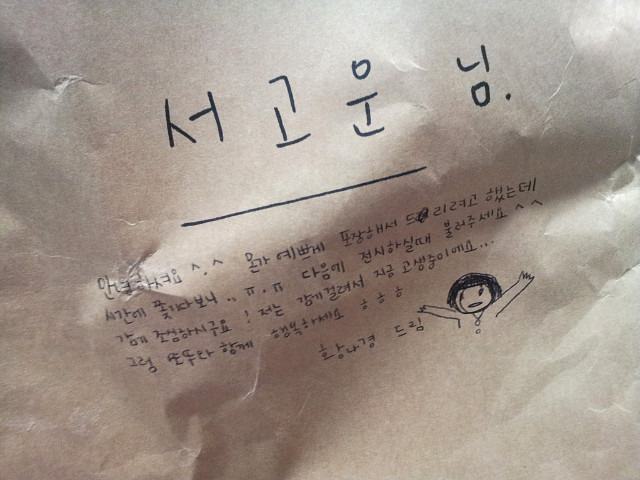 서고운 님.
안녕하셔요 ^.^ 뭔가 예쁘게 포장해서 드리려고 했는데
시간에 쫓기다보니.. ㅠ.ㅠ 다음에 전시하실때 불러주세요 ^^
감기 조심하시구요! 저는 감기걸려서 지금 고생중이에요...
그럼 모두와 함께 행복하세요 ㅎㅎㅎ
황나경 드림